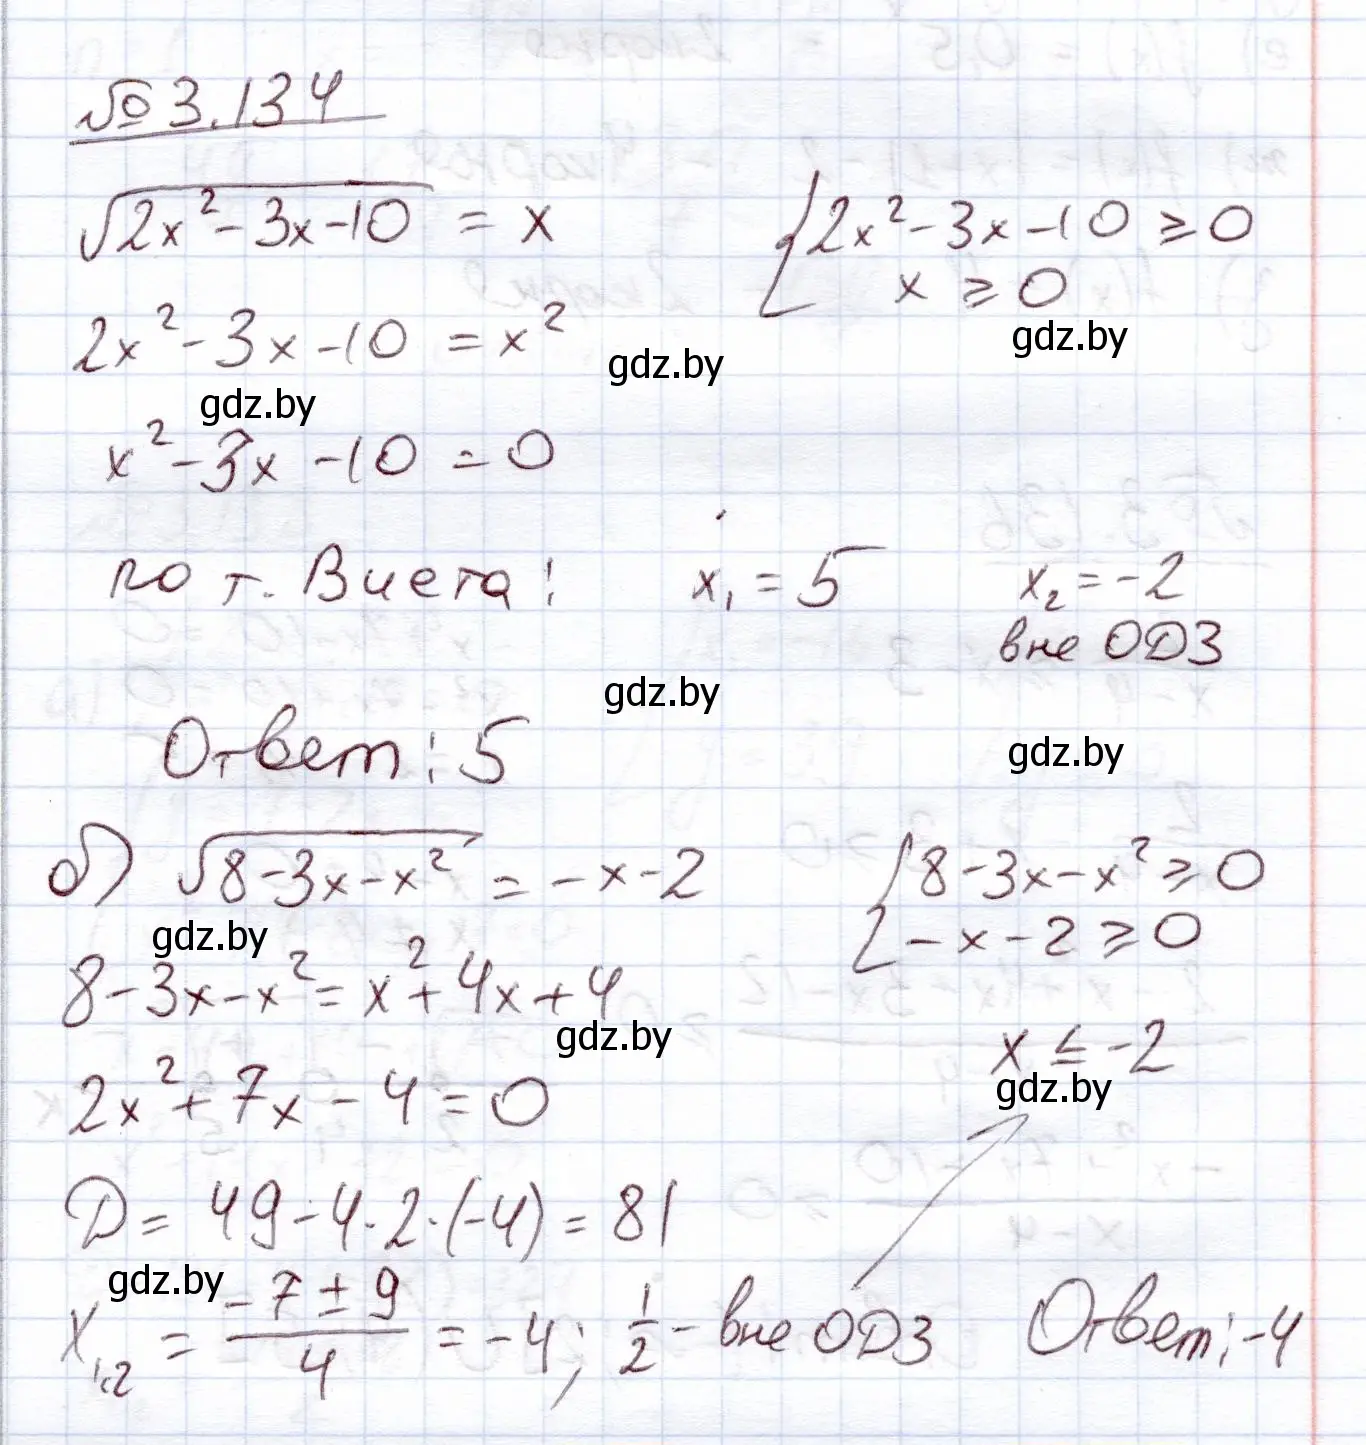 № 3.134
√(2x² - 3x - 10) = x
{ 2x² - 3x - 10 ≥ 0
x ≥ 0
2x² - 3x - 10 = x²
gdz.by
gdz.by
gdz.by
x² - 3x - 10 = 0
по т. Виета: x₁ = 5 x₂ = -2
вне ОДЗ
gdz.by
Ответ: 5
gdz.by
б) √(8 - 3x - x²) = -x - 2
{ 8 - 3x - x² ≥ 0
-x - 2 ≥ 0
gdz.by
8 - 3x - x² = x² + 4x + 4
gdz.by
x ≤ -2
gdz.by
2x² + 7x - 4 = 0
D = 49 - 4·2·(-4) = 81
gdz.by
x₁,₂ = (-7 ± 9)/4 = -4; 1/2 - вне ОДЗ Ответ: -4